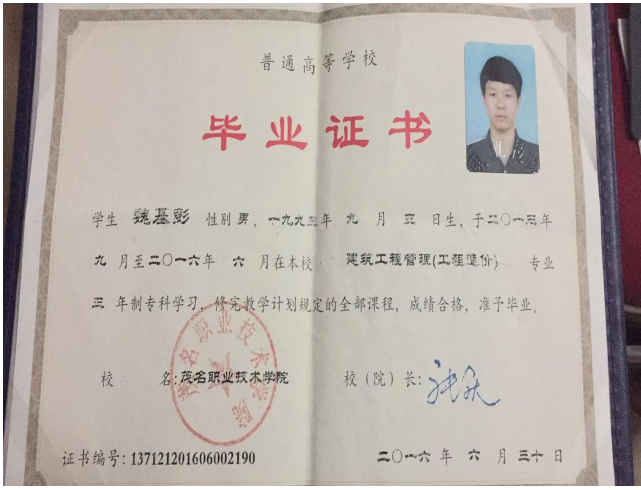 普通高等学校
毕业证书
学生 魏基彭 性别 男，一九九三年 九 月 五 日生，于二〇一三年
九 月至二〇一六年 六 月在本校 建筑工程管理(工程造价) 专业
三 年制专科学习，修完教学计划规定的全部课程，成绩合格，准予毕业。
茂名职业技术学院
校 名：茂名职业技术学院 校（院）长：
证书编号：137121201606002190 二〇一六 年 六 月 三十 日